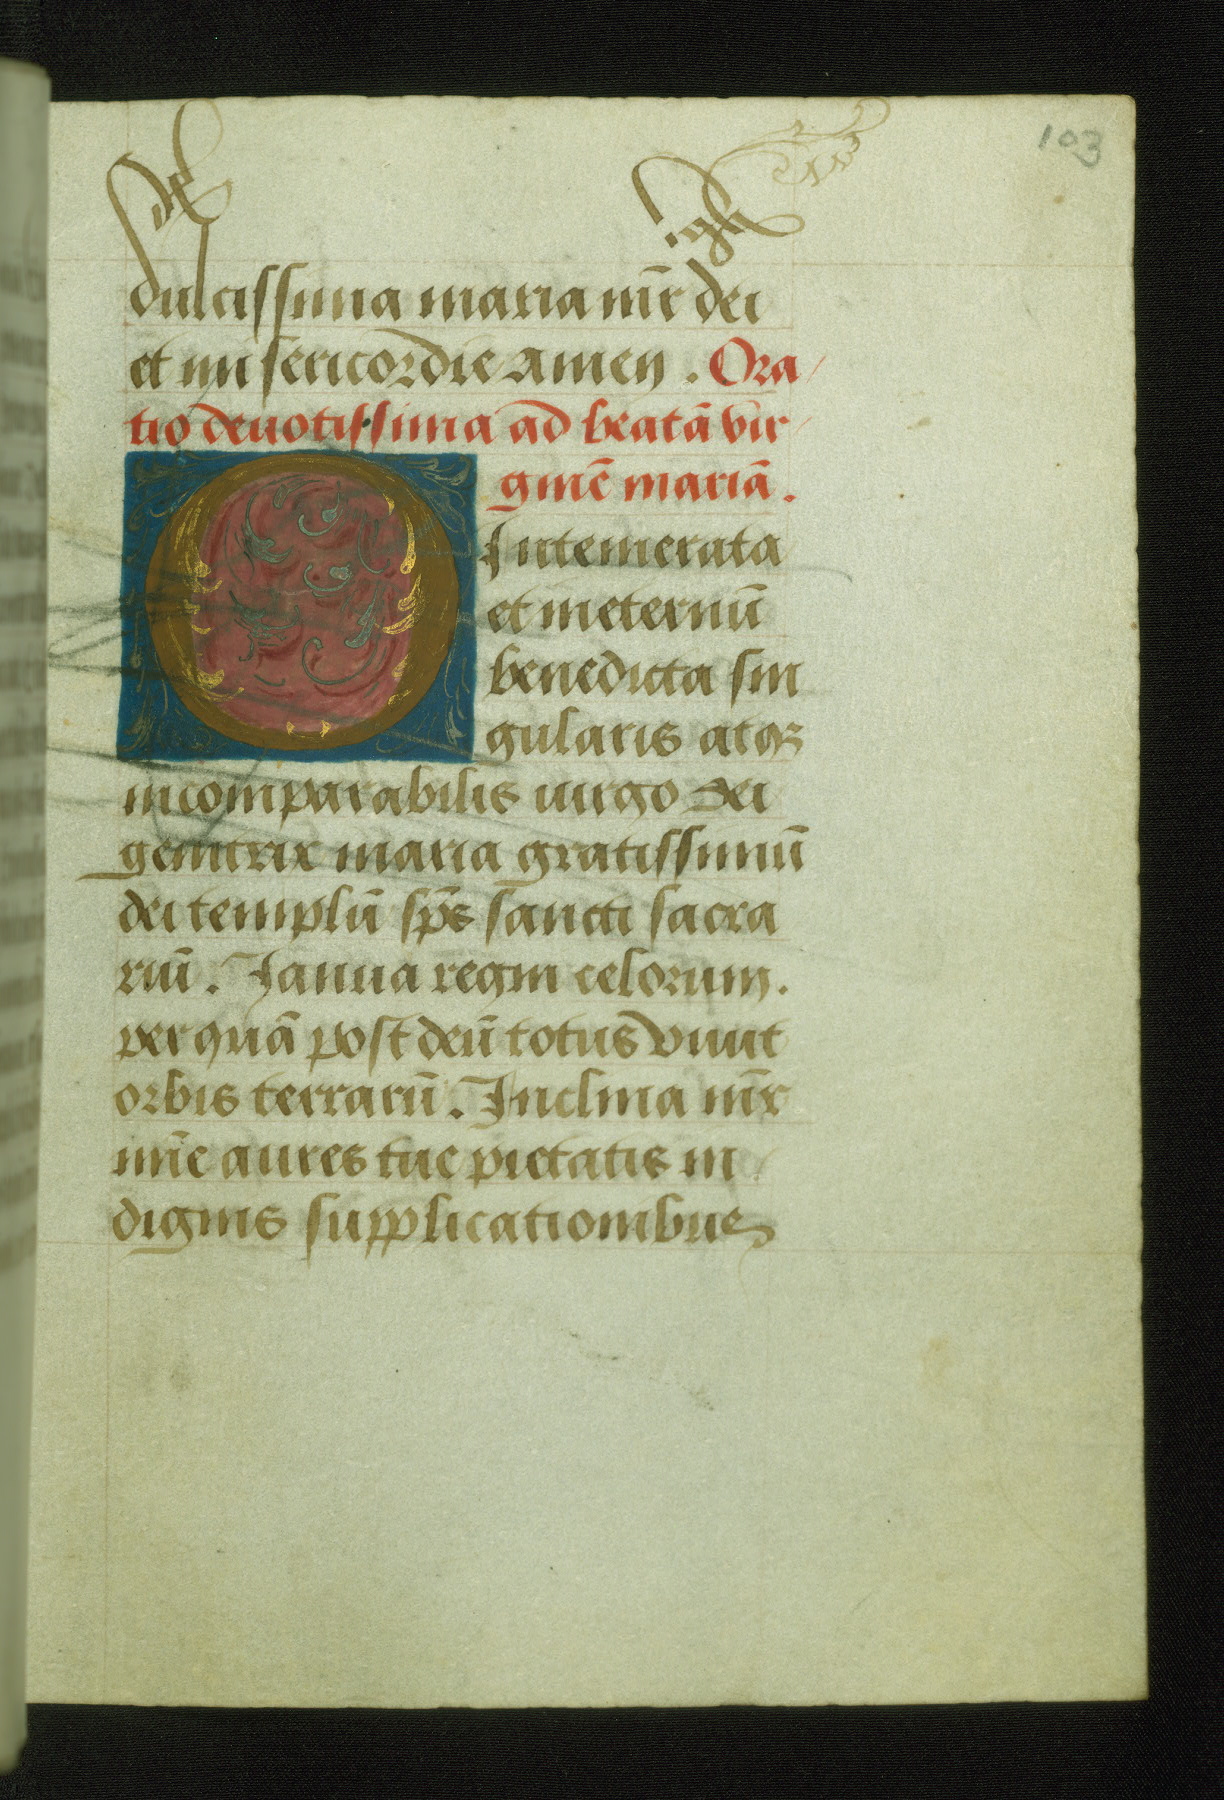 103
dulcissima maria mr̄ dei
et misericordie Amen . Ora
tio deuotissima ad beatā vir
ginē mariā .
O Intemerata
et ineternū
benedicta sin
gularis atqꝫ
incomparabilis uirgo dei
genitrix maria gratissimū
dei templū sp̄s sancti sacra
riū . Ianua regni celorum .
per quā post deū totus viuit
orbis terrarū . Inclina mr̄
mīe aures tue pietatis in
dignis supplicationibus